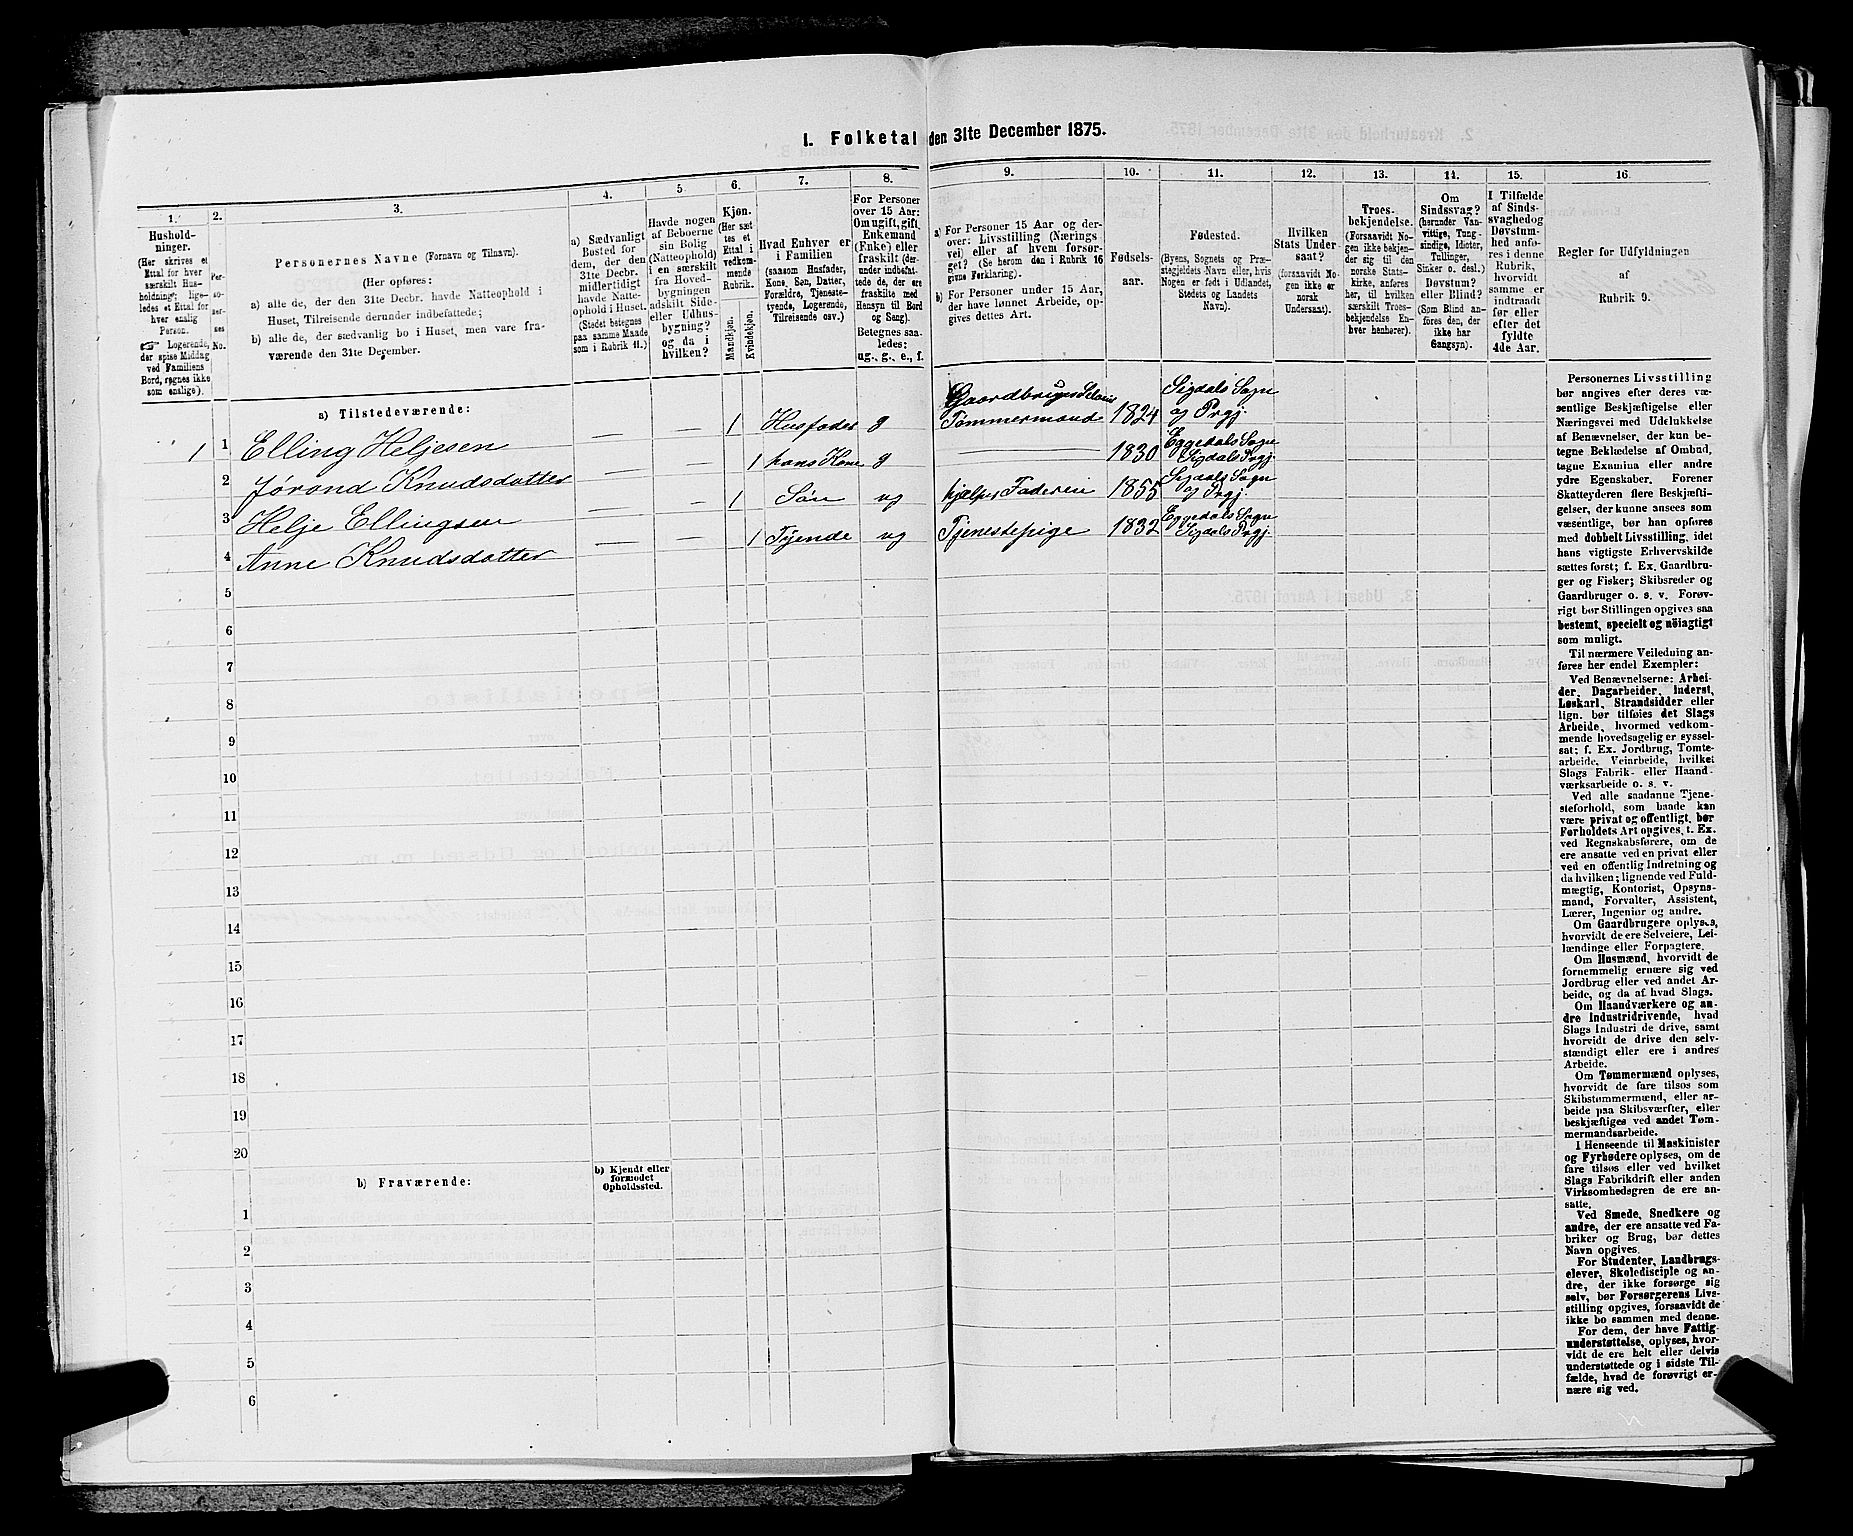 I. Folketal den 31te December 1875.
1.
Hushold-
ninger.
(Her skrives et
Ettal for hver
særskilt Hus-
holdning; lige-
ledes et Ettal for
hver enslig
Person.
Logerende,
der spise Middag
ved Familiens
Bord, regnes ikke
som enslige).
2.
Per-
so-
ner-
nes
No.
3.
Personernes Navne (Fornavn og Tilnavn).
(Her opføres:
a) alle de, der den 31te Decbr. havde Natteophold i
Huset, Tilreisende derunder indbefattede;
b) alle de, der sædvanlig bo i Huset, men vare fra-
værende den 31te December.
4.
a) Sædvanligt
Bosted for
dem, der den
31te Decbr.
midlertidigt
havde Natte-
ophold i Huset.
(Stedet betegnes
paa samme Maade
som i Rubrik 11.)
5.
Havde nogen
af Beboerne
sin Bolig
(Natteophold)
i en særskilt
fra Hoved-
bygningen
adskilt Side-
eller Udhus-
bygning?
og da i
hvilken?
6.
Kjøn.
(Her sæt-
tes et
Ettal i
vedkom-
mende
Rubrik.
Mandkjøn.
Kvindekjøn.
7.
Hvad Enhver er
i Familien
(saasom Husfader,
Kone, Søn, Datter,
Forældre, Tjeneste-
tyende, Logerende,
Tilreisende osv.)
8.
For Personer
over 15 Aar:
Om ugift, gift,
Enkemand
(Enke) eller
fraskilt (der-
under indbefat-
tede de, der ere
fraskilte med
Hensyn til Bord
og Seng).
Betegnes saa-
ledes:
ug., g., e., f.
9.
a) For Personer 15 Aar og der-
over: Livsstilling (Nærings
vei) eller af hvem forsør-
get? (Se herom den i Rubrik 16
givne Forklaring).
b) For Personer under 15 Aar,
der have lønnet Arbeide, op-
gives dettes Art.
10.
Fødsels-
aar.
11.
Fødested.
(Byens, Sognets og Præ-
stegjeldets Navn eller, hvis
Nogen er født i Udlandet,
Stedets og Landets
Navn).
12.
Hvilken
Stats Under-
saat?
(forsaavidt No-
gen ikke er
norsk
Undersaat).
13.
Troes-
bekjendelse.
(Forsaavidt No-
gen ikke bekjen-
der sig til den
norske Stats-
kirke, anføres
her, til hvilken
særskilt Troes-
bekjendelse En-
hver henhører).
14.
Om
Sindssvag?
(herunder Van-
vittige, Tung-
sindige, Idioter,
Tullinger,
Sinker o. desl.)
Døvstum?
eller Blind?
(Som Blind an-
føres den, der
ikke har
Gangsyn).
15.
I Tilfælde
af Sinds-
svaghed og
Døvstum-
hed anfø-
res i denne
Rubrik,
hvorvidt
samme er
indtraadt
før eller
efter det
fyldte
4de Aar.
16
Regler for Udfyldningen
af
Rubrik 9.
a) Tilstedeværende:
1 1 Elling Heljesen — — 1 Husfader g Gaardbruger Selveier Tømmermand 1824 Sigdals Sogn og Prgj.
2 Jørond Knudsdatter — — 1 hans Kone g — 1830 Eggedals Sogn Sigdals Prgj.
3 Helje Ellingsen — — 1 Søn ug hjælper Faderen 1855 Sigdals Sogn og Prgj.
4 Anne Knudsdatter — — 1 Tyende ug Tjenestepige 1832 Eggedals Sogn Sigdals Prgj.
5
6
7
8
9
10
11
12
13
14
15
16
17
18
19
20
b) Fraværende:
b) Kjendt eller
formodet
Opholdssted.
1
2
3
4
5
6
Personernes Livsstilling
bør angives efter deres væ-
sentlige Beskjæftigelse eller
Næringsvei med Udelukkelse
af Benævnelser, der kun be-
tegne Beklædelse af Ombud,
tagne Examina eller andre
ydre Egenskaber. Forener
Skatteyderen flere Beskjæfti-
gelser, der kunne ansees som
væsentlige, bør han opføres
med dobbelt Livsstilling, idet
hans vigtigste Erhvervskilde
sættes først; f. Ex. Gaardbru-
ger og Fisker; Skibsreder og
Gaardbruger o. s. v. Forøv-
rigt bør Stillingen opgives saa
bestemt, specielt og nöiagtigt
som muligt.
Til nærmere Veiledning an-
føres her endel Exempler:
Ved Benævnelserne: Arbei-
der, Dagarbeider, Inderst,
Løskarl, Strandsidder eller
lign. bør tilføies det Slags
Arbeide, hvormed vedkom-
mende hovedsagelig er syssel-
sat; f. Ex. Jordbrug, Tomte-
arbeide, Veiarbeide, hvilket
Slags Fabrik- eller Haand-
værksarbeide o. s. v.
Ved alle saadanne Tjene-
steforhold, som baade kan
være privat og offentligt, bør
Forholdets Art opgives, t. Ex.
ved Regnskabsførere, om de
ere ansatte ved en privat eller
ved en offentlig Indretning og
da hvilken; lignende ved Fuld-
mægtig, Kontorist, Opsyns-
mand, Forvalter, Assistent,
Lærer, Ingeniør og andre.
Om Gaardbrugere oplyses,
hvorvidt de ere Selveiere, Lei-
lændinge eller Forpagtere.
Om Husmænd, hvorvidt de
fornemmelig ernære sig ved
Jordbrug eller ved andet Ar-
beide, og da af hvad Slags.
Om Haandværkere og an-
dre Industridrivende, hvad
Slags Industri de drive, samt
hvorvidt de drive den selv-
stændigt eller ere i andres
Arbeide.
Om Tømmermænd oplyses,
hvorvidt de fare tilsøs som
Skibstømmermænd, eller ar-
beide paa Skibsværfter, eller
beskjæftiges ved andet Tøm-
mermandsarbeide.
I Henseende til Maskinister
og Fyrbødere oplyses, om de
fare tilsøs eller ved hvilket
Slags Fabrikdrift eller anden
Virksomhedsgren de ere an-
satte.
Ved Smede, Snedkere og
andre, der ere ansatte ved Fa-
briker og Brug, bør dettes
Navn opgives.
For Studenter, Landbrugs-
elever, Skoledisciple og an-
dre, der ikke forsørge sig
selv, bør Forsørgerens Livs-
stilling opgives, forsaavidt de
ikke bo sammen med denne.
For dem, der have Fattig-
understøttelse, oplyses, hvor-
vidt de ere helt eller delvis
understøttede og i sidste Til-
fælde, hvad de forøvrigt er-
nære sig ved.